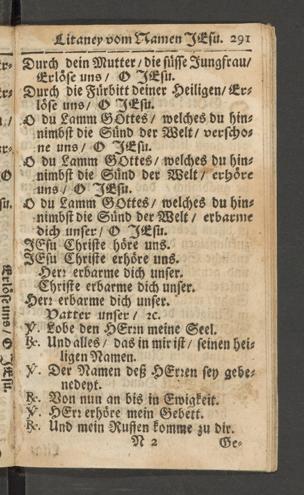 Litaney vom Namen JEsu. 291
Durch dein Mutter / die süsse Jungfrau /
Erlöse uns / O JEsu.
Durch die Fürbitt deiner Heiligen / Er-
löse uns / O JEsu.
O du Lamm GOttes / welches du hin-
nimbst die Sünd der Welt / verscho-
ne uns / O JEsu.
O du Lamm GOttes / welches du hin-
nimbst die Sünd der Welt / erhöre
uns / O JEsu.
O du Lamm GOttes / welches du hin-
nimbst die Sünd der Welt / erbarme
dich unser / O JEsu.
JEsu Christe höre uns.
JEsu Christe erhöre uns.
Herr erbarme dich unser.
Christe erbarme dich unser.
Herr erbarme dich unser.
Vatter unser / ꝛc.
℣. Lobe den HErrn meine Seel.
℟. Und alles / das in mir ist / seinen hei-
ligen Namen.
℣. Der Namen deß HErren sey gebe-
nedeyt.
℟. Von nun an bis in Ewigkeit.
℣. HErr erhöre mein Gebett.
℟. Und mein Ruffen komme zu dir.
N 2 Ge-
Erlöse uns / O JEsu.